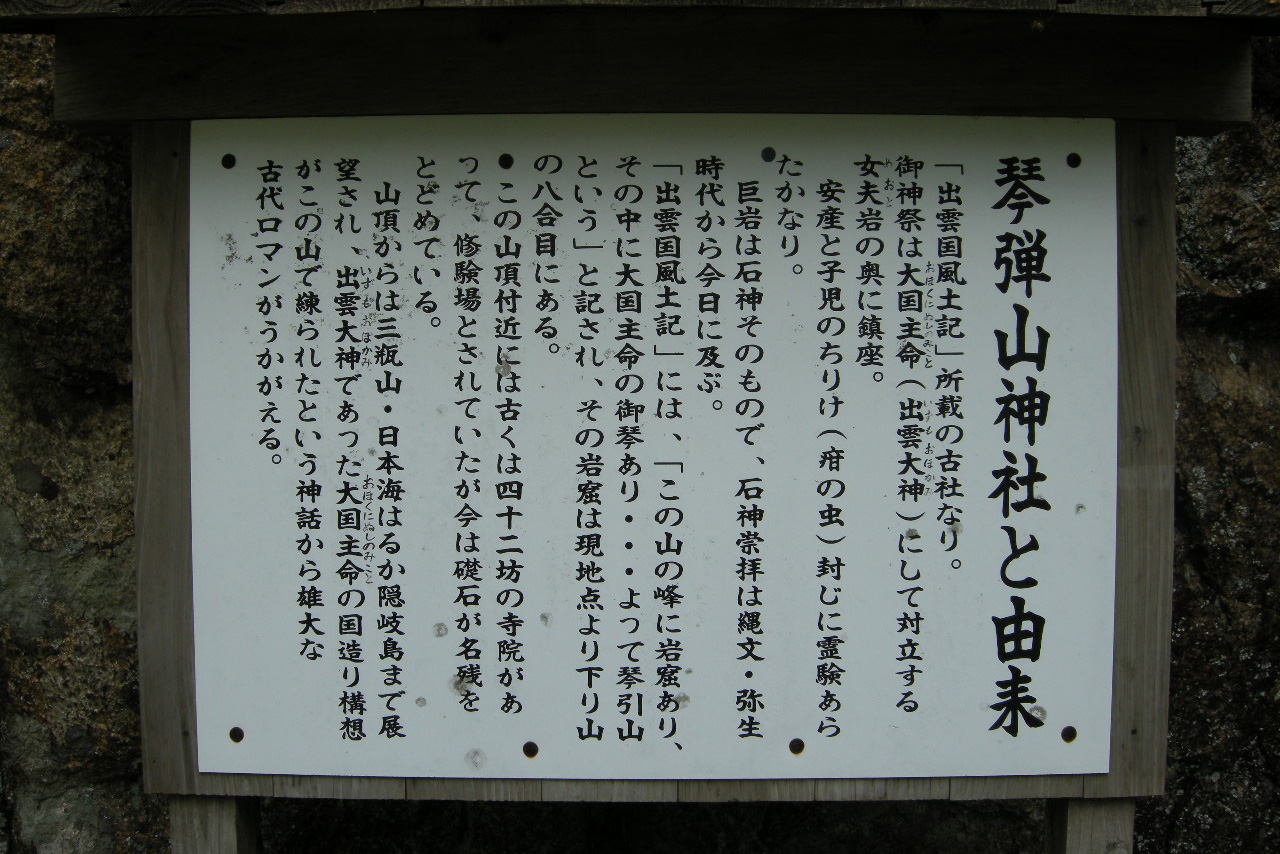 琴弾山神社と由来
「出雲国風土記」所載の古社なり。
御神祭は大国主命(出雲大神)にして対立する
おほくにぬしのみこと
いずもおほかみ
女夫岩の奥に鎮座。
めおと
安産と子児のちりけ(疳の虫)封じに霊験あら
たかなり。
巨岩は石神そのもので、石神崇拝は縄文・弥生
時代から今日に及ぶ。
「出雲国風土記」には、「この山の峰に岩窟あり、
その中に大国主命の御琴あり・・・よって琴引山
という」と記され、その岩窟は現地点より下り山
の八合目にある。
この山頂付近には古くは四十二坊の寺院があ
って、修験場とされていたが今は礎石が名残を
とどめている。
山頂からは三瓶山・日本海はるか隠岐島まで展
望され、出雲大神であった大国主命の国造り構想
いずもおほかみ
おほくにぬしのみこと
がこの山で練られたという神話から雄大な
古代ロマンがうかがえる。